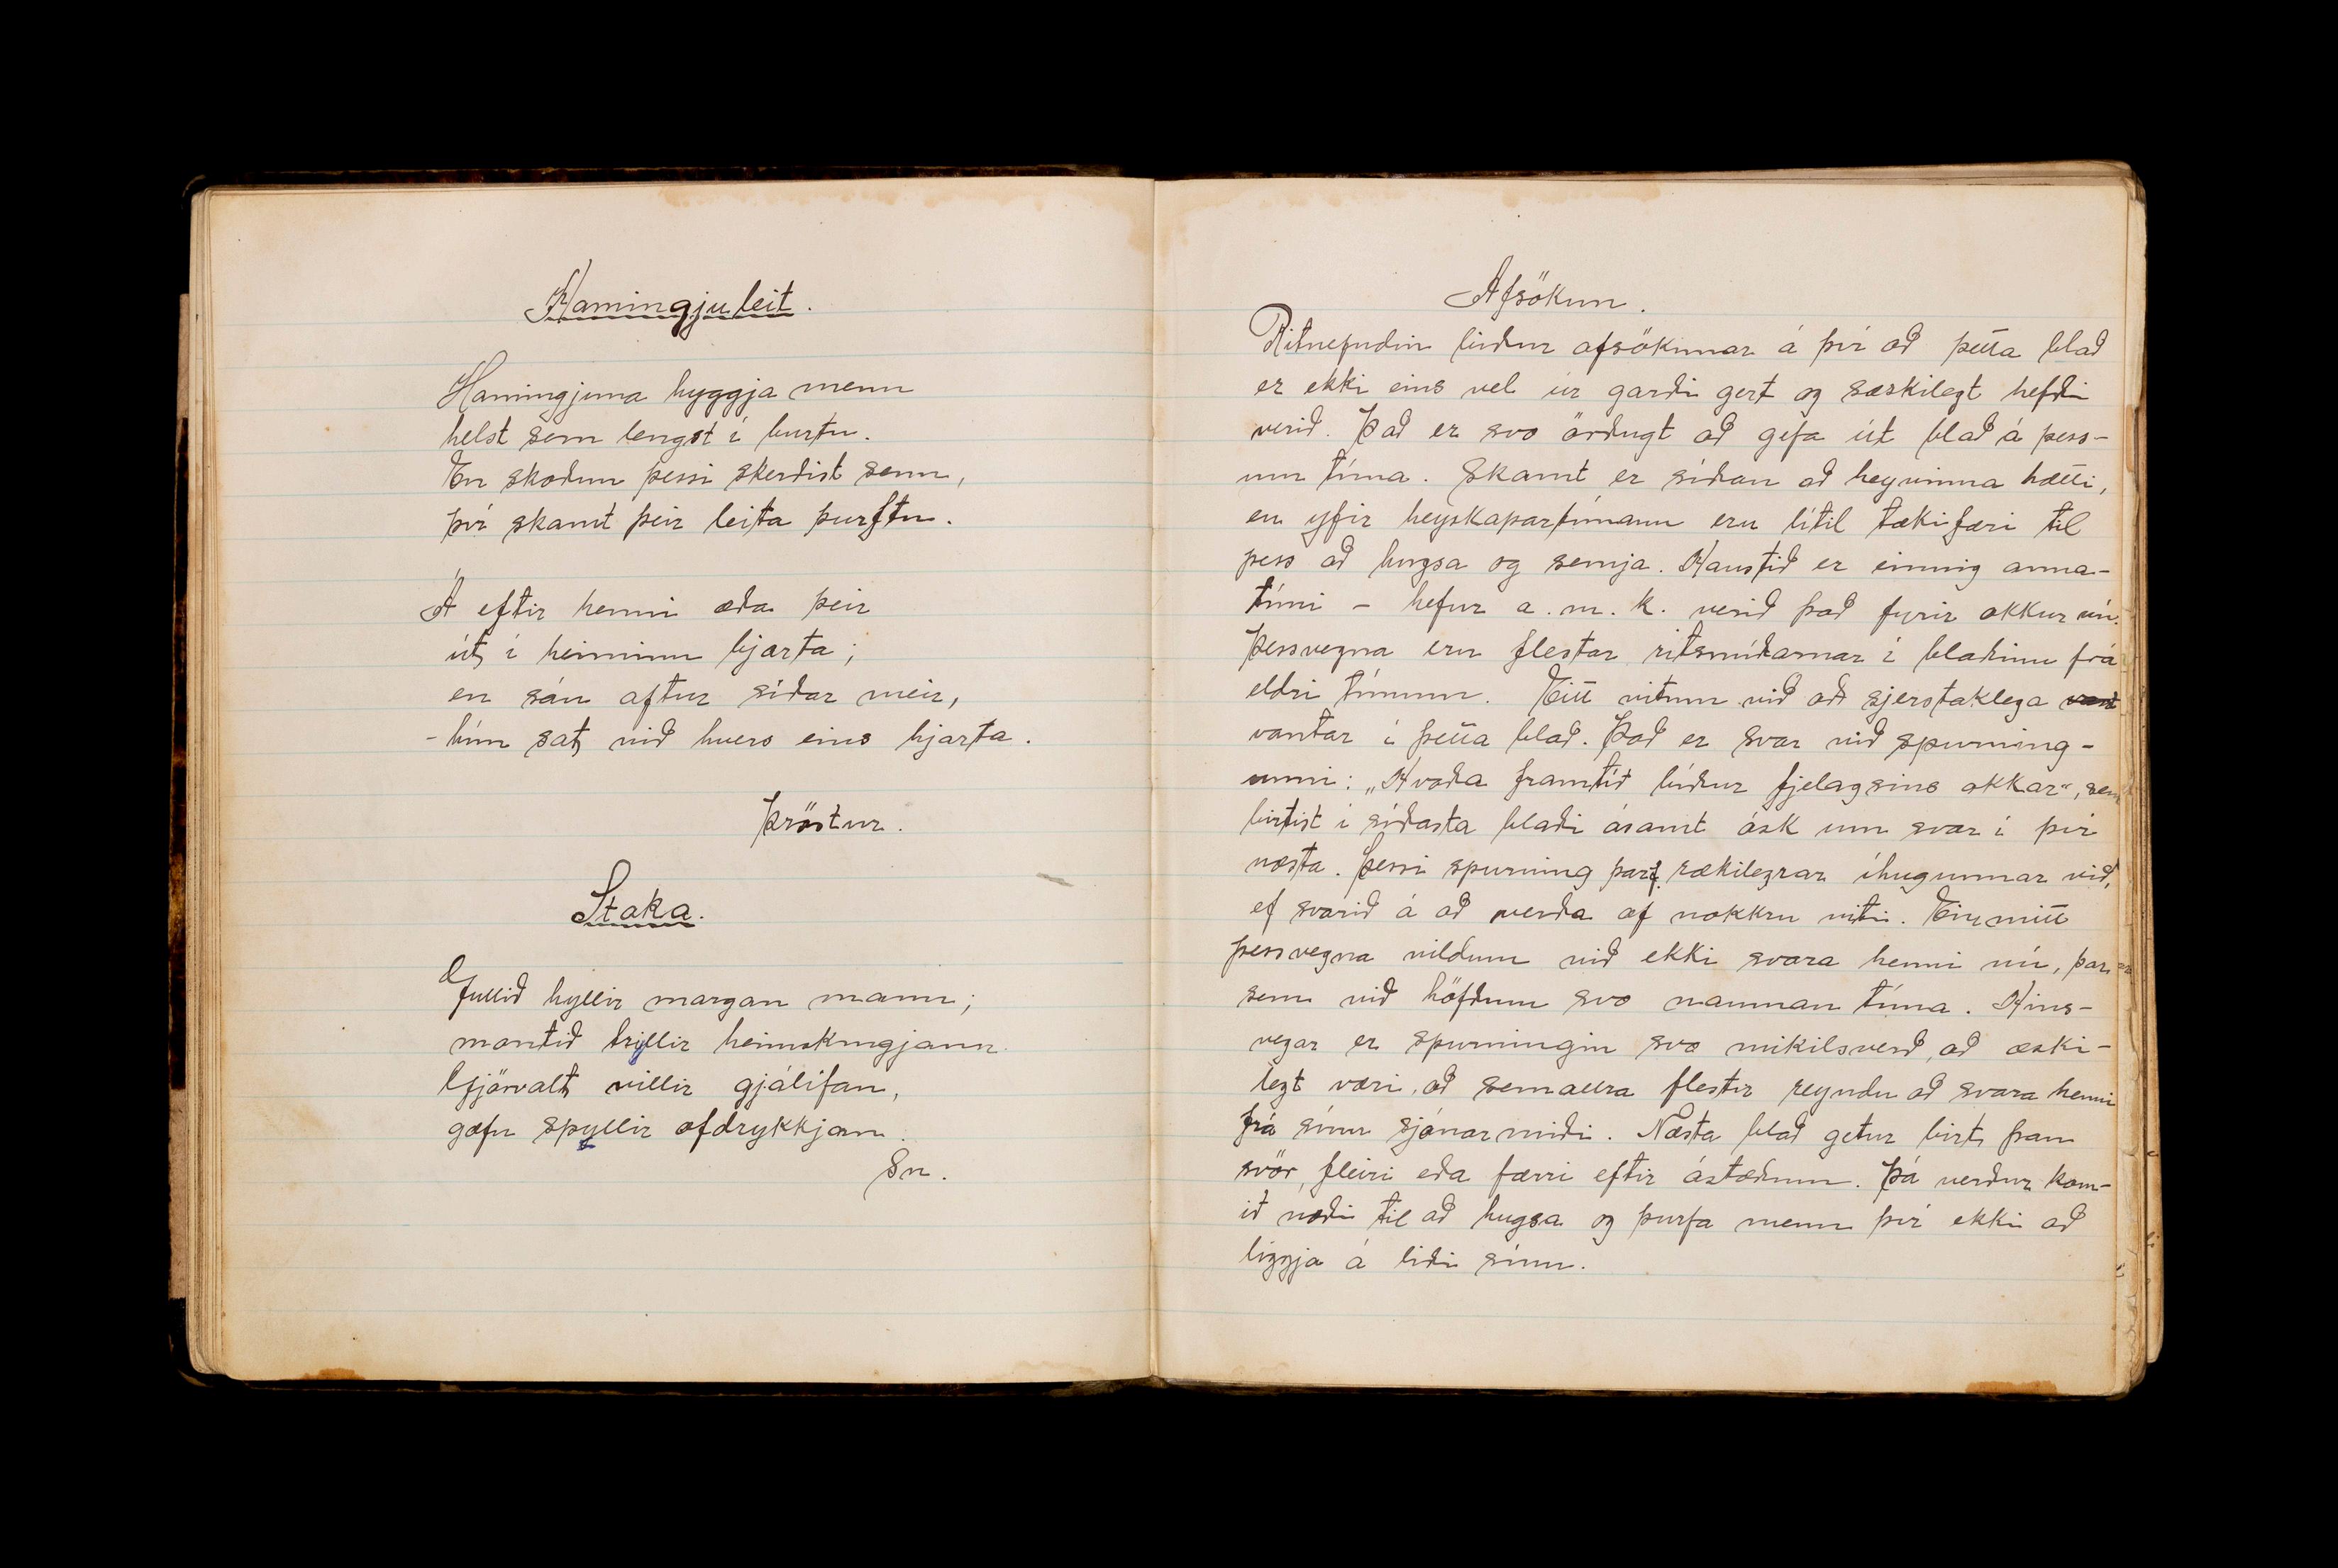 Hamingjuleit.
Hamingjuna hyggja menn
helst sem lengst í burtu.
En skoðun þessi skerðist senn,
því skamt þeir leita þurftu.
Á eftir henni æða þeir
út í heiminn bjarta;
en sáu aftur síðar meir,
- hún sat við hvers eins hjarta.
Þröstur.
Staka.
Gullið hyllir margan mann;
montið tryllir heimskingjann
fjörvalt villir gjálífan,
gæfu spyllir ofdrykkjan.
Sn.
Afsökun.
Ritnefndin biður afsökunar á því að þetta blað
er ekki eins vel úr garði gert og æskilegt hefði
verið. Það er svo örðugt að gefa út blað á þess-
um tíma. Skamt er síðan að heyvinna hætti,
en yfir heyskapartímann eru lítil tækifæri til
þess að hugsa og semja. Haustið er einnig anna-
tími - hefur a.m.k. verið það fyrir okkur nú.
Þessvegna eru flestar ritsmíðarnar í blaðinu frá
eldri tímum. Eitt vitum við að sjerstaklega vant
vantar í þetta blað. Það er svar við spurning-
unni: „Hvaða framtíð bíður fjelagsins okkar", sem
birtist í síðasta blaði ásamt ósk um svar í því
næsta. Þessi spurning þarf rækilegrar íhugunnar við,
ef svarið á að verða af nokkru viti. Einmitt
þessvegna vildum við ekki svara henni nú, þar
sem við höfðum svo nauman tíma. Hins-
vegar er spurningin svo mikilsverð, að æski-
legt væri, að sem allra flestir reyndu að svara henni
frá sínu sjónarmiði. Næsta blað getur birt þau
svör, fleiri eða færri eftir ástæðum. Þá verður kom-
ið næði til að hugsa og þurfa menn því ekki að
liggja á liði sínu.